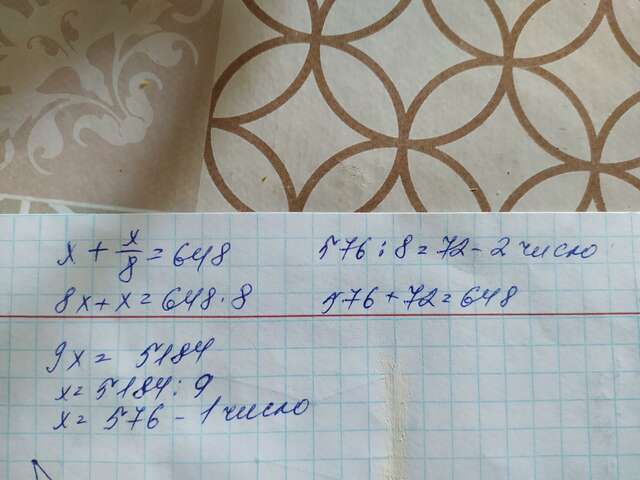 x + x/8 = 648
8x + x = 648 · 8
9x = 5184
x = 5184 : 9
x = 576 - 1 число
576 : 8 = 72 - 2 число
576 + 72 = 648